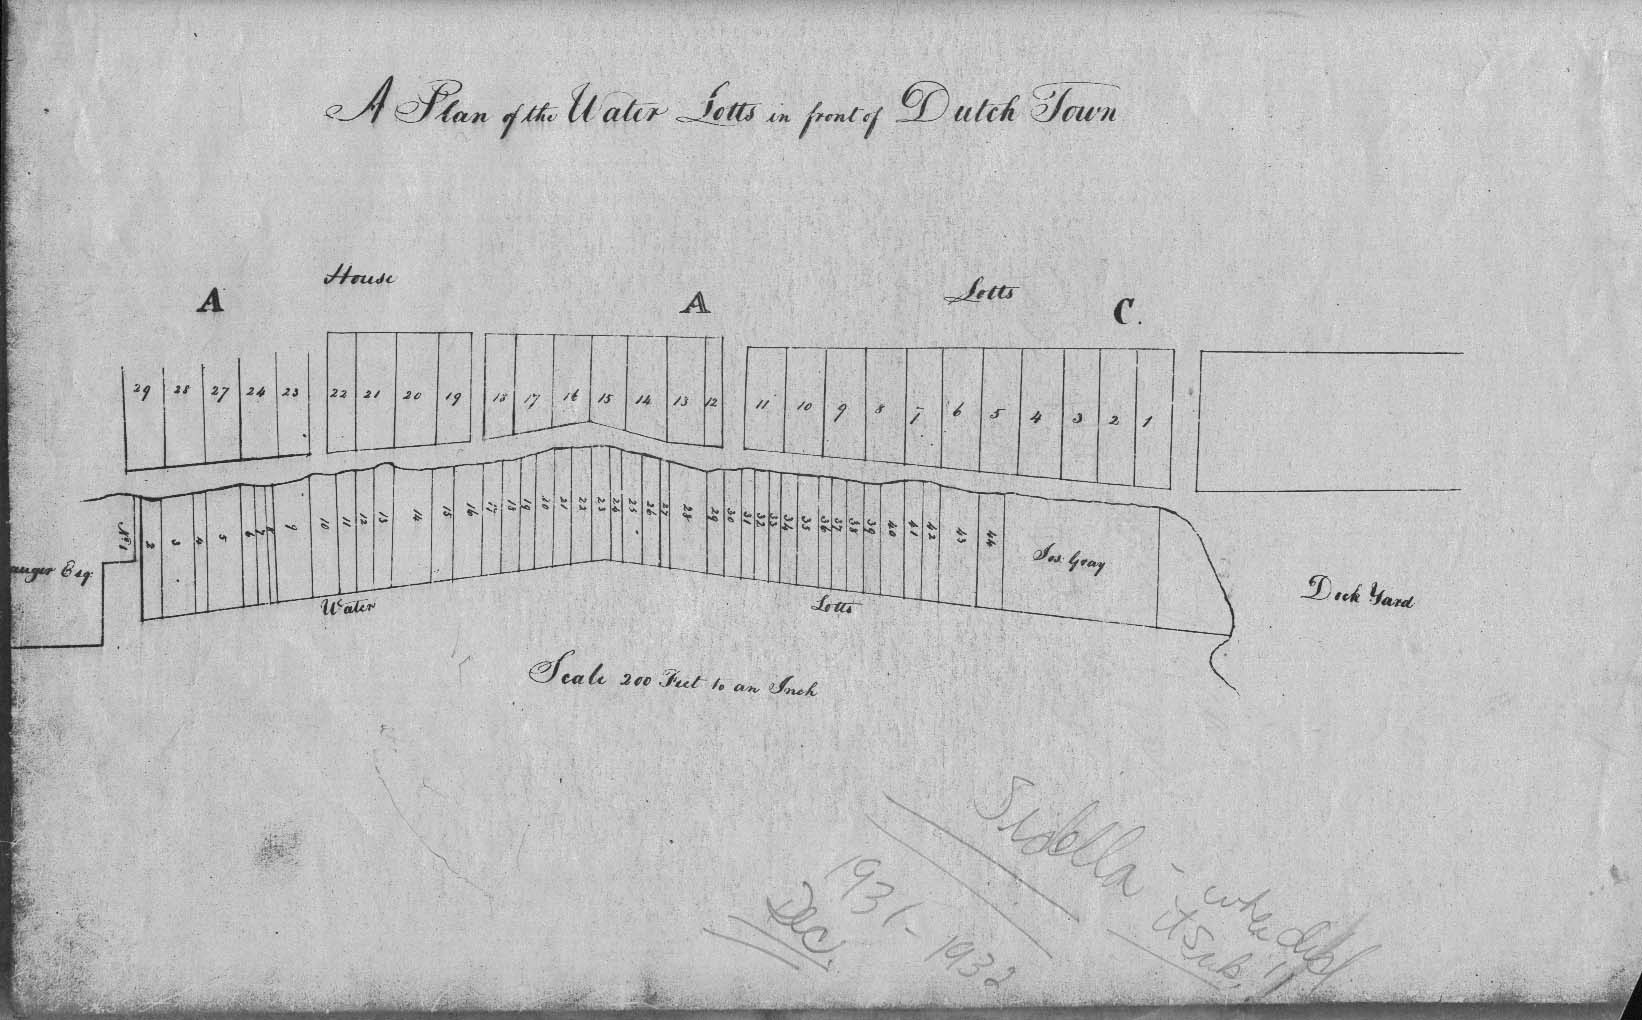 A Plan of the Water Lotts in front of Dutch Town
House Lotts
A A C.
29 28 27 24 23 22 21 20 19 18 17 16 15 14 13 12 11 10 9 8 7 6 5 4 3 2 1
No 1 2 3 4 5 6 7 8 9 10 11 12 13 14 15 16 17 18 19 20 21 22 23 24 25 26 27 28 29 30 31 32 33 34 35 36 37 38 39 40 41 42 43 44 Jos. Gray
anger Esq. Dock Yard
Water Lotts
Scale 200 Feet to an Inch
1931 - 1932
Dec.